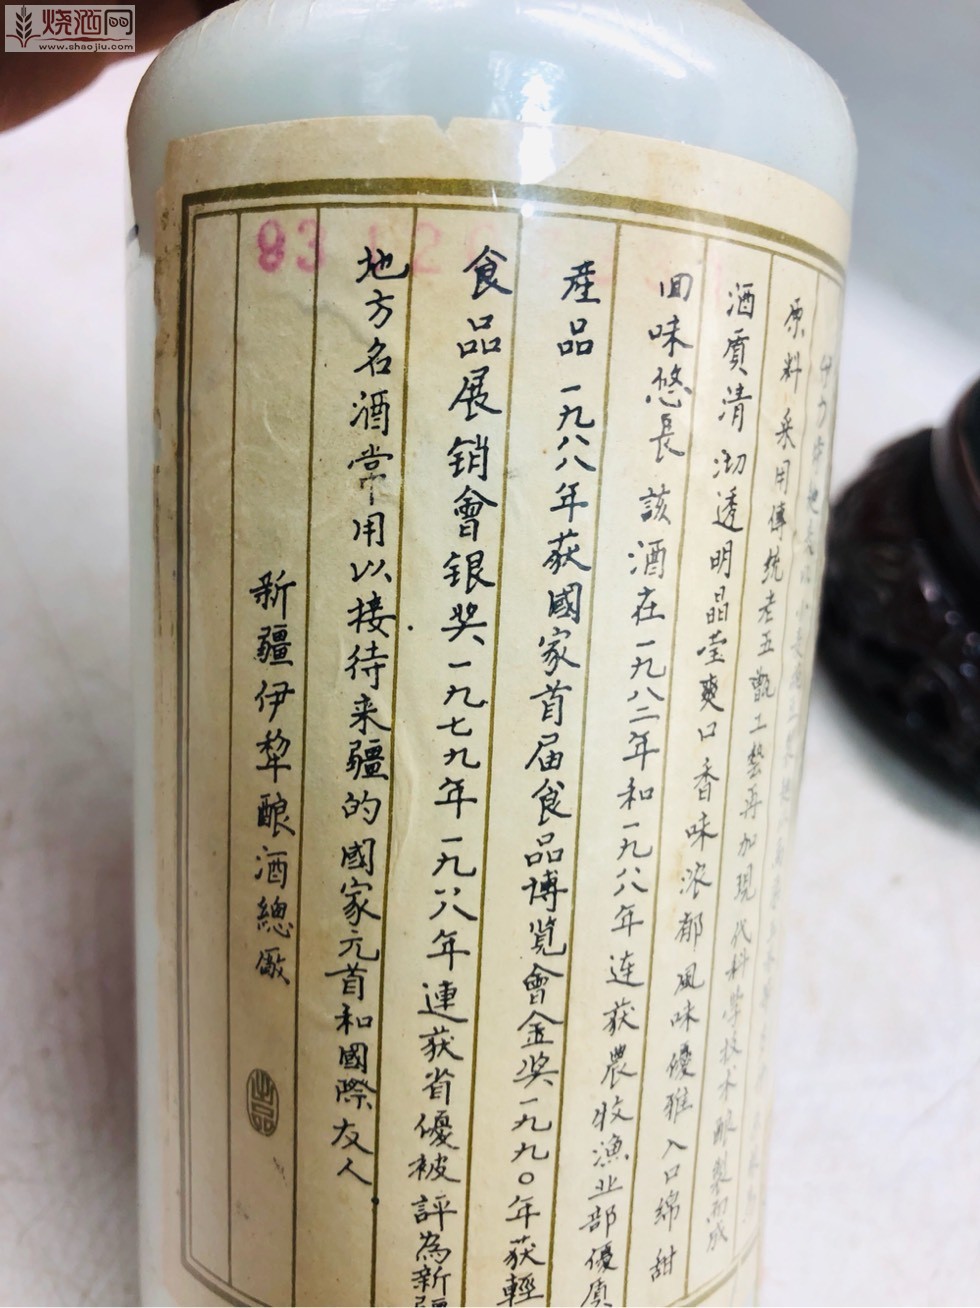 烧酒网
www.shaojiu.com
原料采用傳统老五甑工藝再加現代科学技术酿製而成
酒质清沏透明晶莹爽口香味浓郁風味優雅入口绵甜
回味悠長該酒在一九八二年和一九八八年连获農牧漁业部優质
産品一九八八年获國家首届食品博览會金奖一九九〇年获輕
食品展销會银奖一九七九年一九八八年連获省優被評為新疆
地方名酒常用以接待来疆的國家元首和國際友人
新疆伊犂酿酒總廠
93